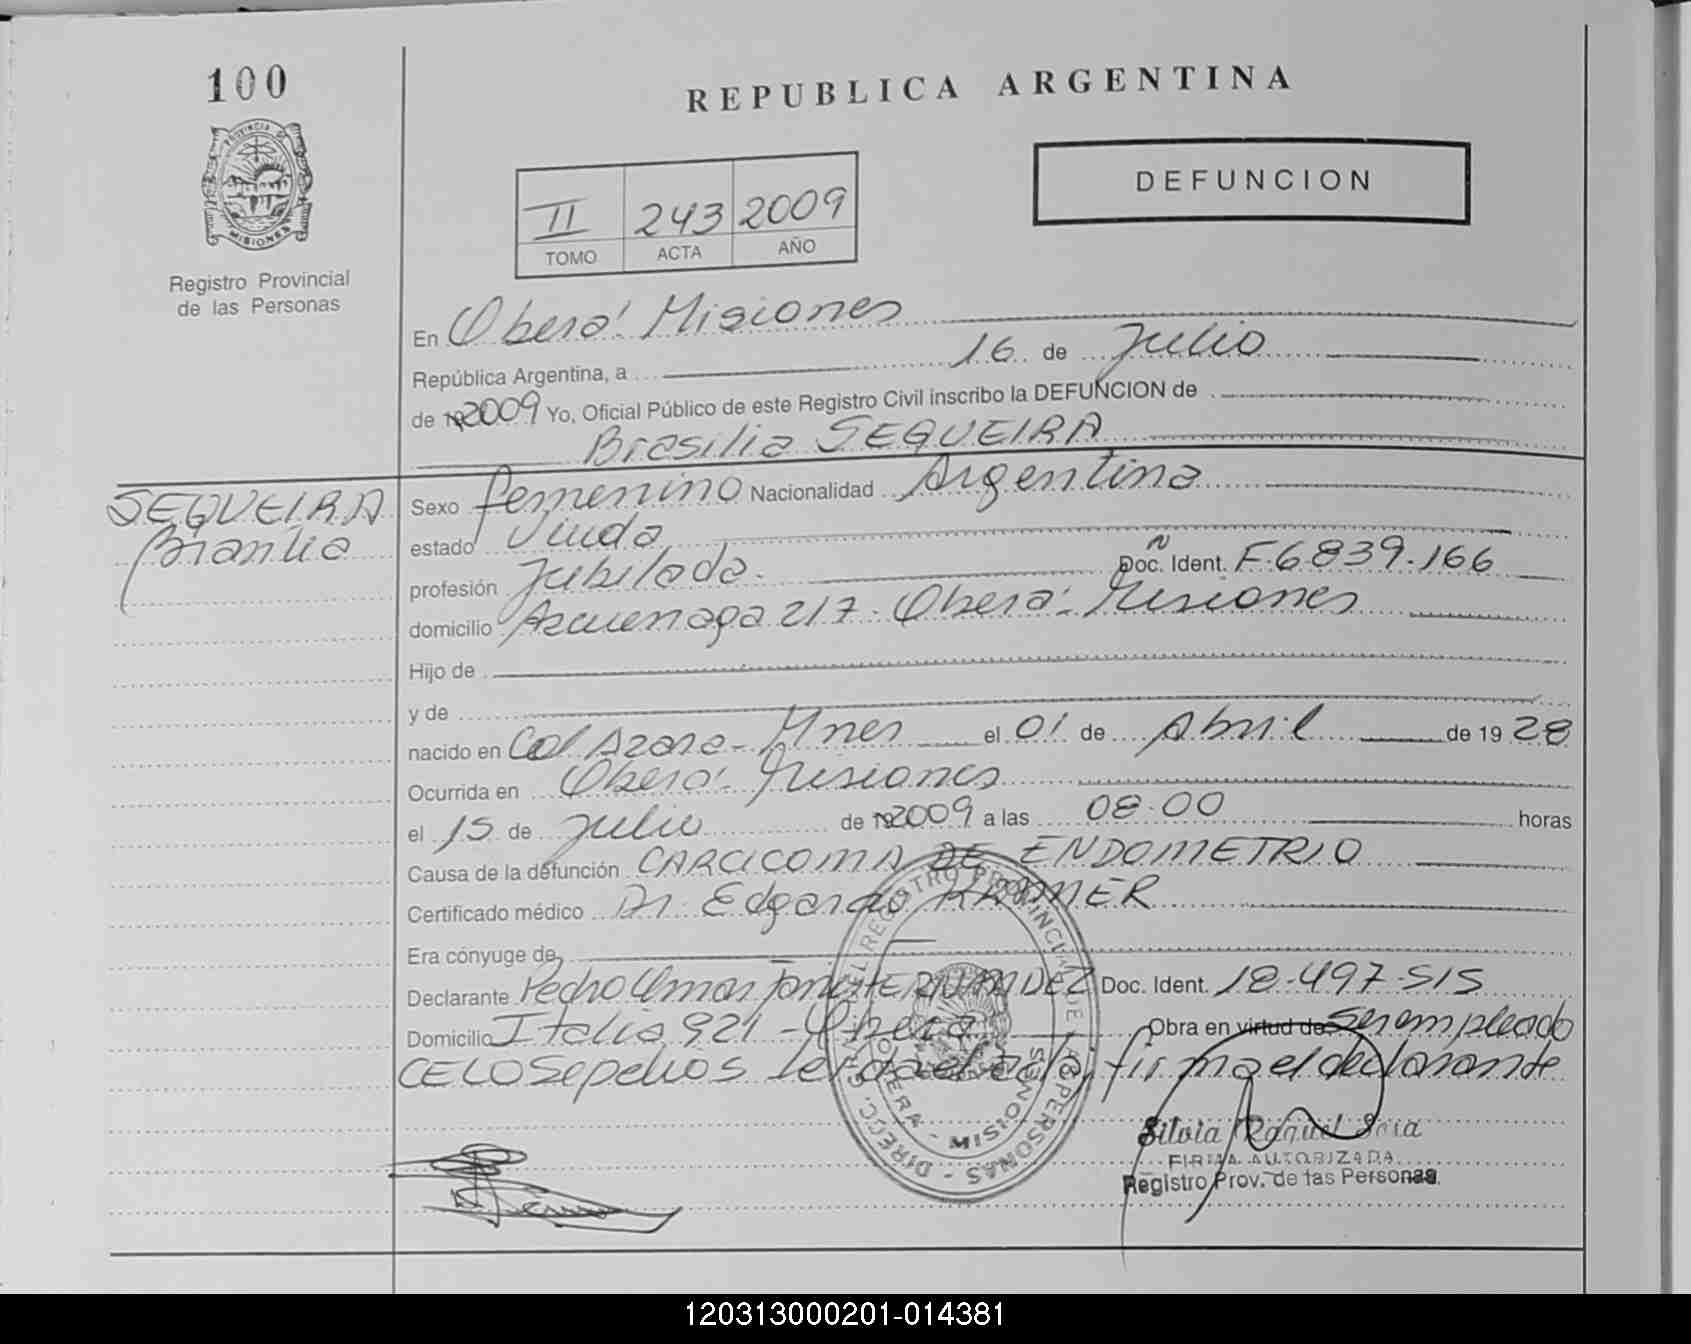 100
REPUBLICA ARGENTINA
PROVINCIA DE
MISIONES
Registro Provincial
de las Personas
DEFUNCION
II 243 2009
TOMO ACTA AÑO
En Oberá Misiones
República Argentina, a 16 de Julio
de 19 2009 Yo, Oficial Público de este Registro Civil inscribo la DEFUNCION de
Brasilia SEQUEIRA
SEQUEIRA
Brasilia
Sexo femenino Nacionalidad Argentina
estado Viuda
profesión Jubilada. Doc. Ident. F.6839.166
domicilio Azcuenaga 217. Oberá - Misiones
Hijo de
y de
nacido en Col Azara - Mnes el 01 de Abril de 1928
Ocurrida en Oberá - Misiones
el 15 de Julio de 19 2009 a las 08.00 horas
Causa de la defunción CARCICOMA DE ENDOMETRIO
Certificado médico Dr. Edgardo KRAMER
Era cónyuge de
Declarante Pedro Omar HERNANDEZ Doc. Ident. 18.497.515
Domicilio Italia 921 - Oberá Obra en virtud de Ser empleado
CELO Sepelios Leida el acta, firma el declarante
DIRECC. GRAL. DEL REGISTRO PROVINCIAL DE LAS PERSONAS
OBERA - MISIONES
Silvia Raquel
FIRMA AUTORIZADA
Registro Prov. de las Personas
120313000201-014381